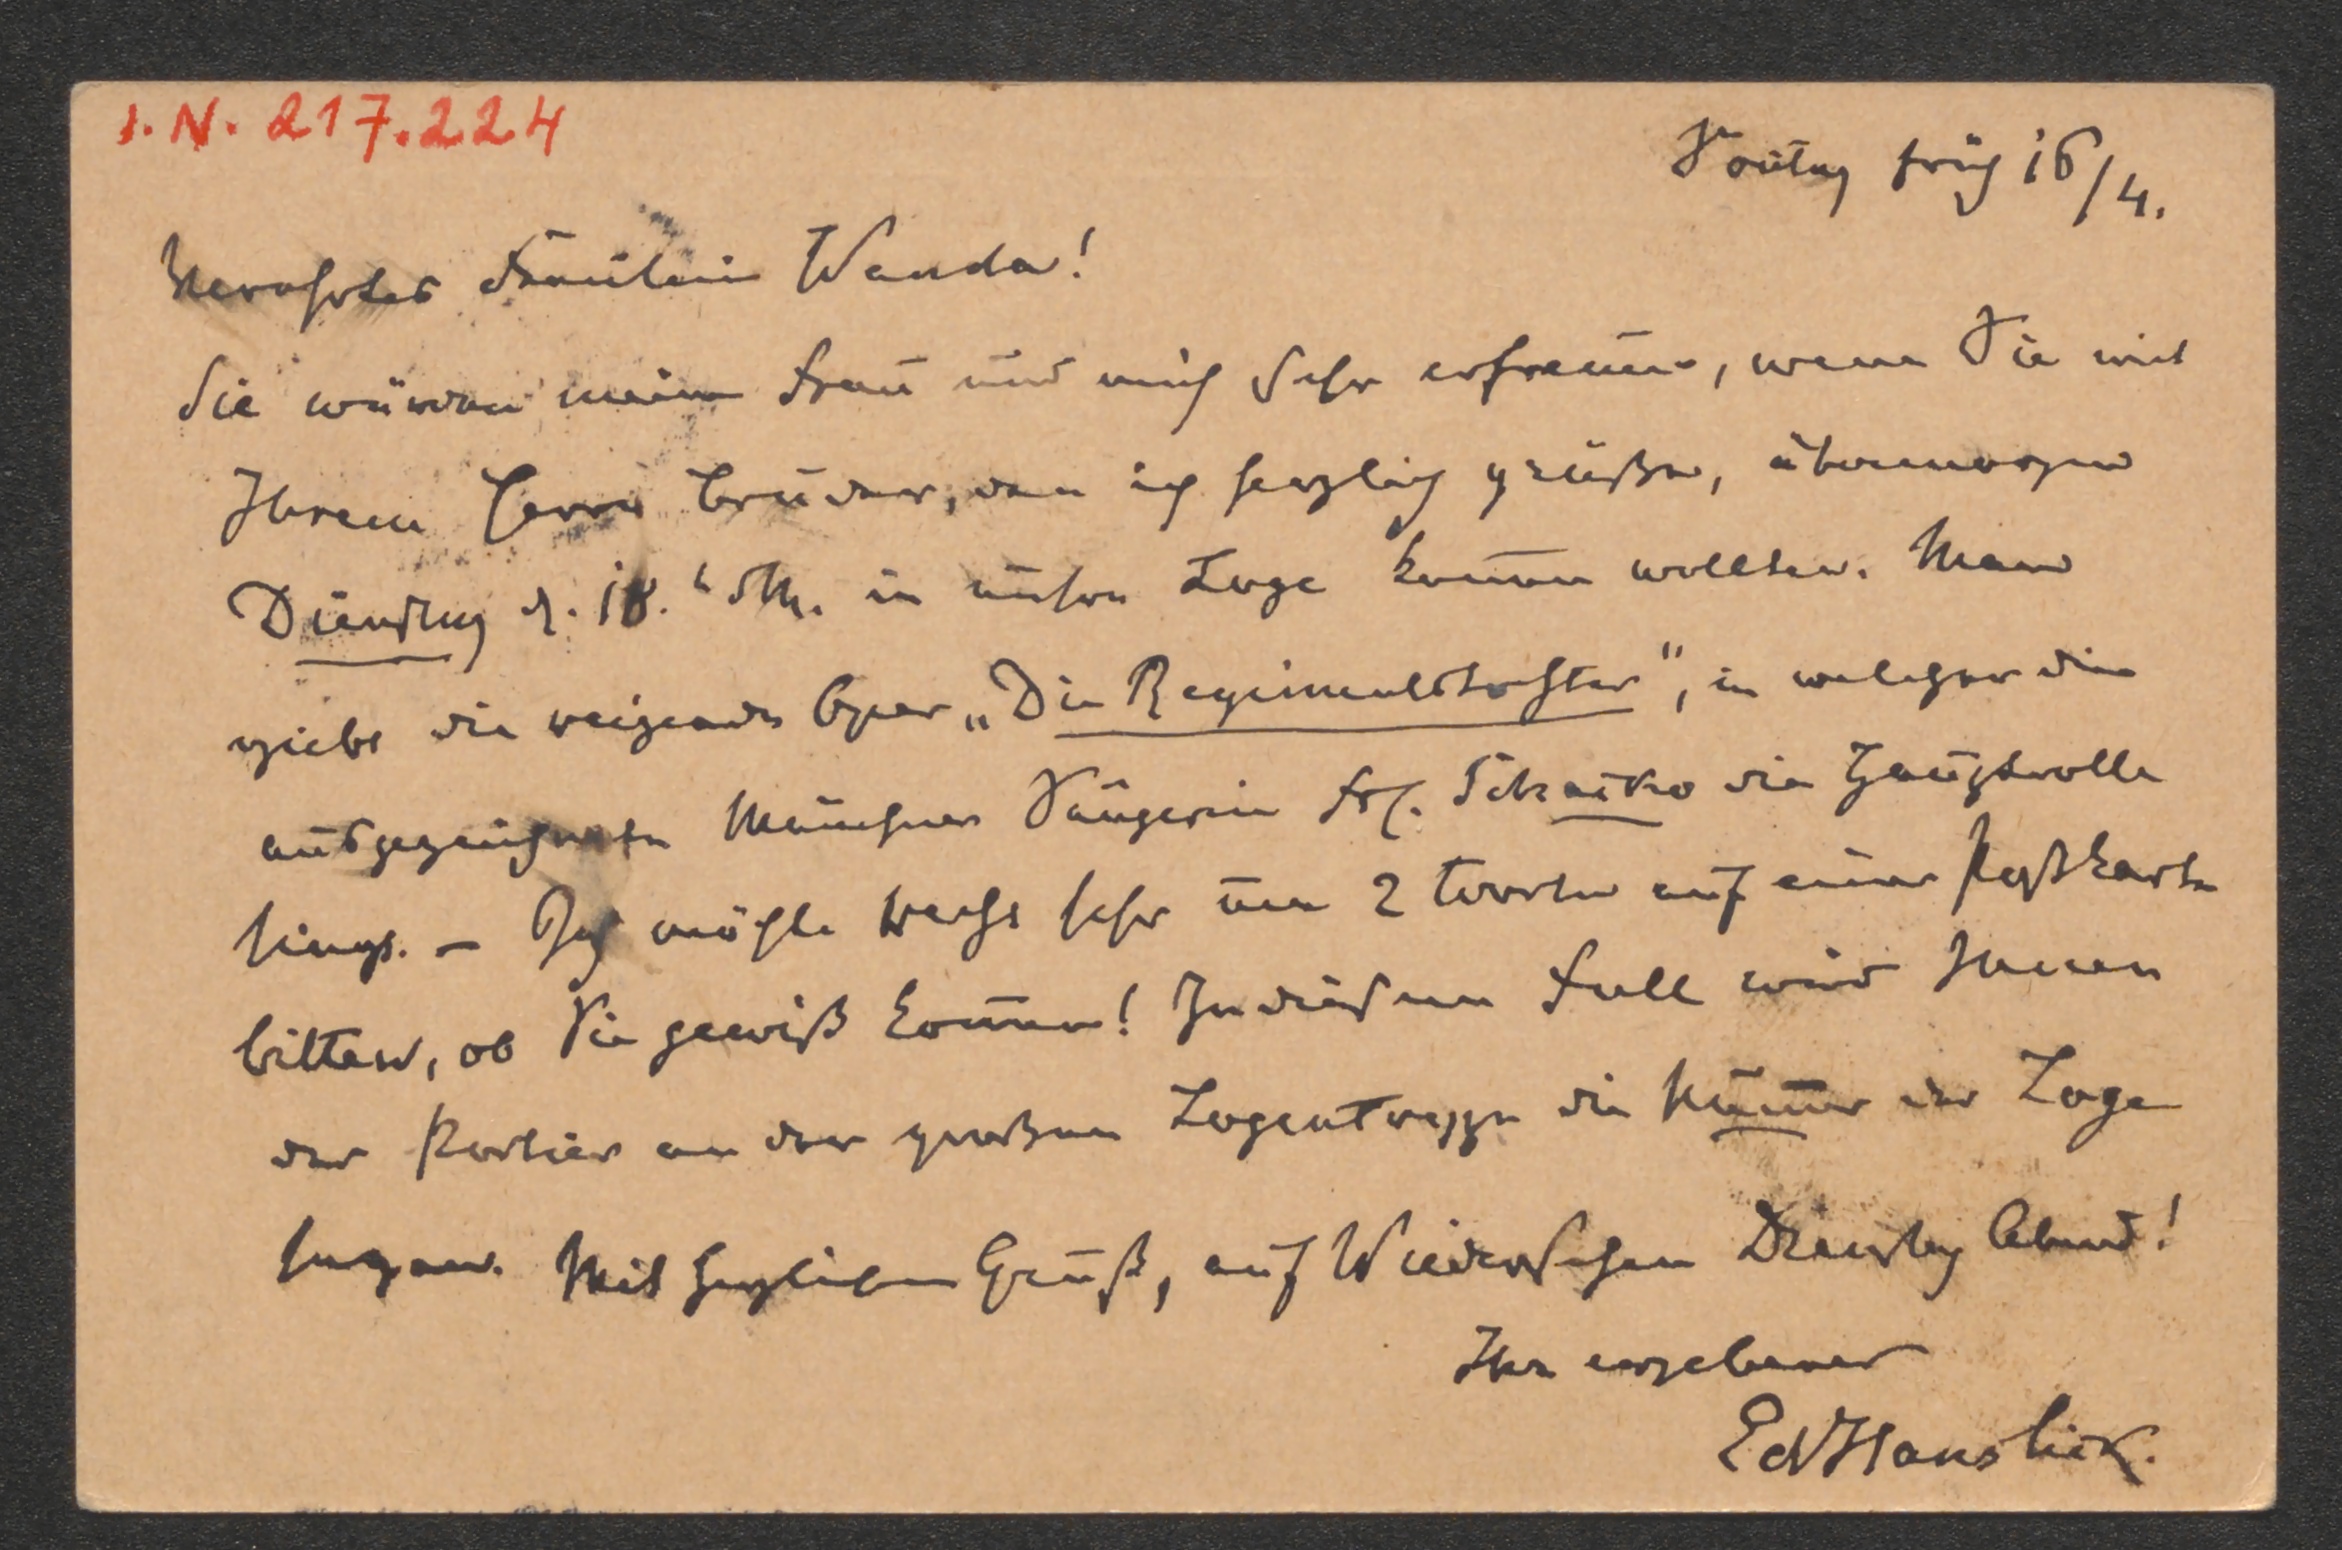 I.N. 217.224
Sontag früh 16/4.
Verehrtes Fräulein Wanda!
Sie würden meine Frau und mich sehr erfreuen, wenn Sie mit
Ihrem Herrn Bruder, den ich herzlich grüße, übermorgen
Dienstag d. 18. d M. in unsre Loge kom̄en wollten. Man
giebt die reizende Oper „Die Regimentstochter", in welcher die
ausgezeichnete Münchner Sängerin Frl. die Hauptrolle
singt. – Ich möchte recht sehr um 2 Worte auf einer Postkarte
bitten, ob Sie gewiß kom̄en! In diesem Fall wird Ihnen
der Portier an der großen Logentreppe die Num̄er der Loge
sagen. Mit herzlichem Gruß, auf Wiedersehen Dienstag Abend!
Ihr ergebener
EdHanslick.